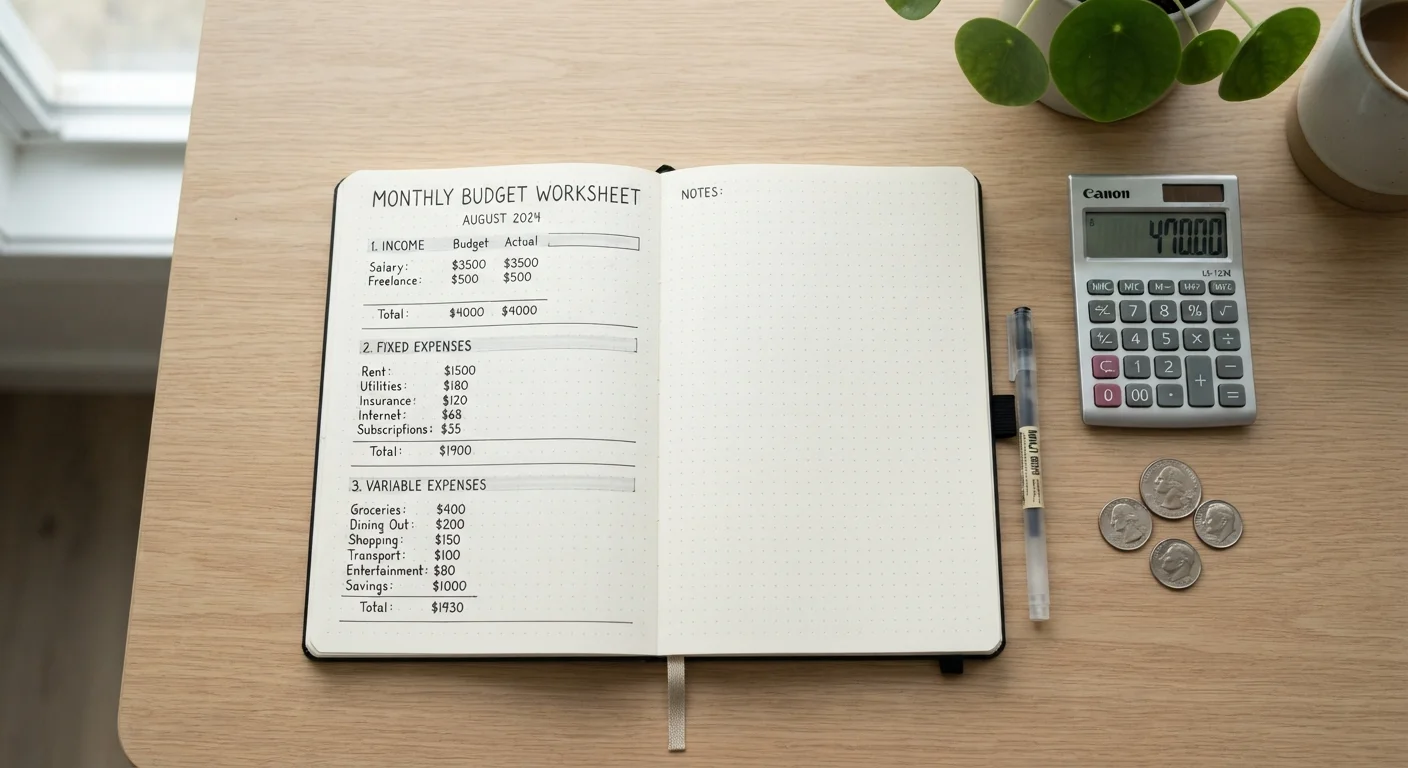 MONTHLY BUDGET WORKSHEET
AUGUST 2024
1. INCOME Budget Actual
Salary: $3500 $3500
Freelance: $500 $500
Total: $4000 $4000
2. FIXED EXPENSES
Rent: $1500
Utilities: $180
Insurance: $120
Internet: $68
Subscriptions: $55
Total: $1900
3. VARIABLE EXPENSES
Groceries: $400
Dining Out: $200
Shopping: $150
Transport: $100
Entertainment: $80
Savings: $1000
Total: $1930
NOTES:
Canon
7 8 % √
4 5 X ÷
1 2 + −
0 00 . =